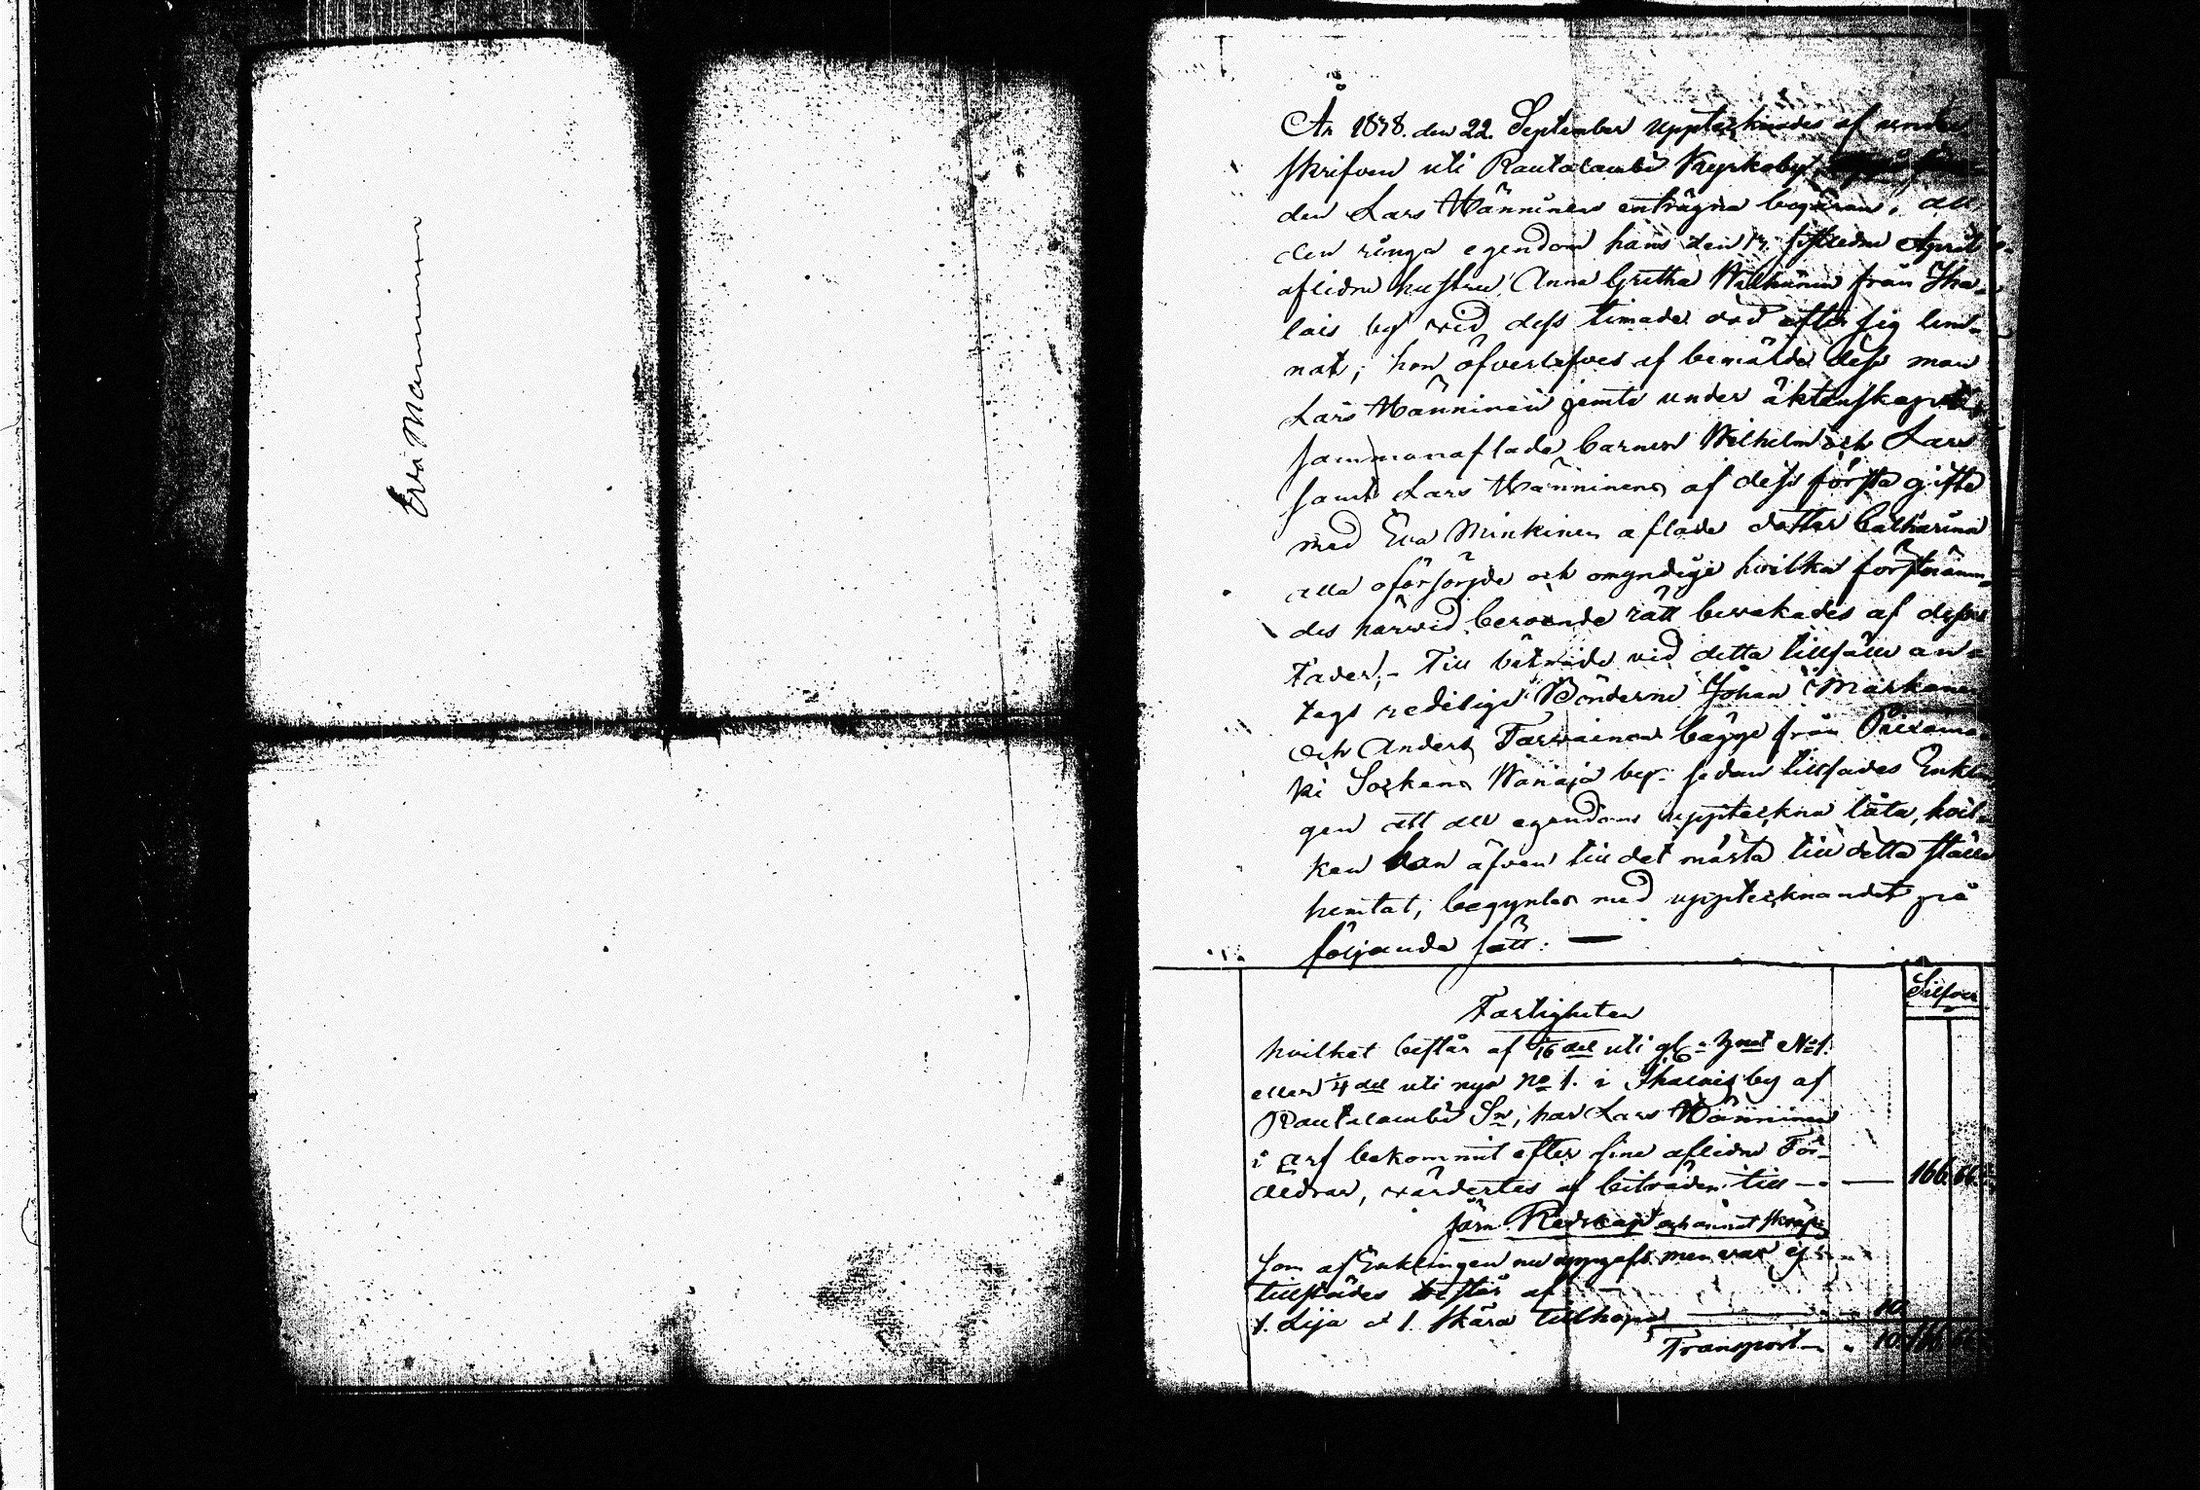 Eva Manninen
År 1878. den 22. September upptecknades af under-
skrifven uti Rautalambi Kyrkoby
den Lars Hänninens enträgna begäran, all
den ringa egendom hans den 17. sistledne April
aflidne hustru Anna Gretha from Iha-
lais by wid dess timade död efter sig lem-
nat; hon öfverlefves af bemälde dess man
Lars Hänninen jemte under äktenskapet
sammanaflade barnen Wilhelm och Lars
samt Lars Hänninens af dess första gifte
med Eva Minkinen aflade dotter Catharina
alla oförsörjde och omyndige hvilkas
des härwid beroende rätt bewakades af dess
Fader;- Till biträde vid detta tillfälle an-
togs redelige Bönderne Johan Markanen
och Anders Tarvainen bägge från
ki Sockens by. sedan tillsades Enklin-
gen att all egendom uppteckna låta, hvil-
ken han äfven till det mästa till detta ställe
hemtat, begyntes med upptecknandet på
följande sätt: —
Silfver
Fastigheten
hvilket består af 1/16 del uti gl. No 1.
eller 1/4 del uti nya No 1. i Ihalais by af
Rautalambi Sn, har Lars Hänninen
i arf bekommit efter sine aflidne För-
äldrar, värdertes af biträden till — 166. 66.
Järn Redskap och annat skräp
Som af Enklingen nu uppgefs men var ej
tillstädes består af
1. Lija o 1. skära tillhopa — 10.
Transport — 10. 166. 66